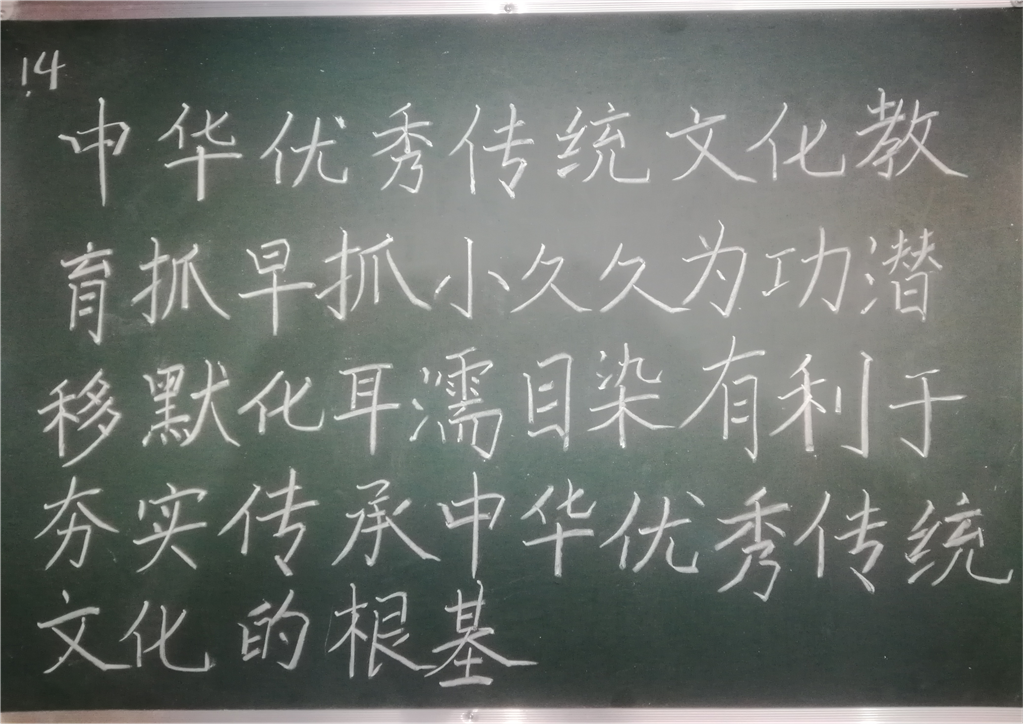 14
中华优秀传统文化教
育抓早抓小久久为功潜
移默化耳濡目染有利于
夯实传承中华优秀传统
文化的根基